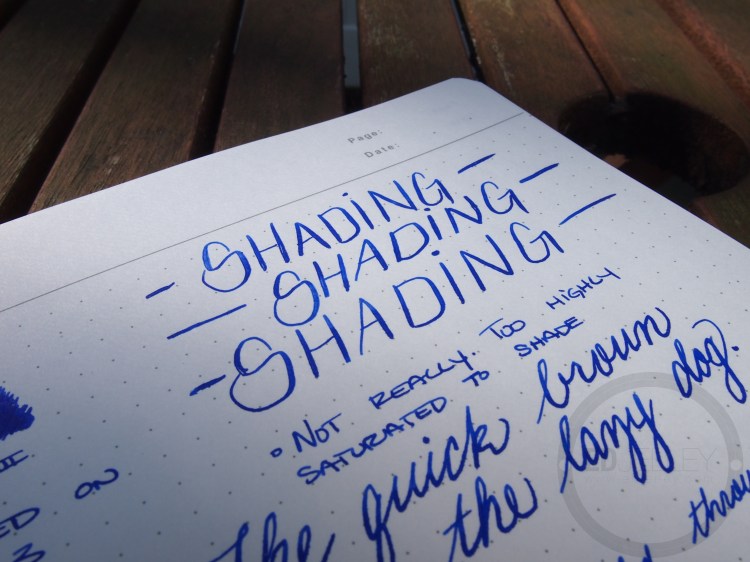 Page:
Date:
- SHADING -
- SHADING -
- SHADING -
• NOT REALLY. TOO HIGHLY
SATURATED TO SHADE
The quick brown
the lazy dog.
ED ON